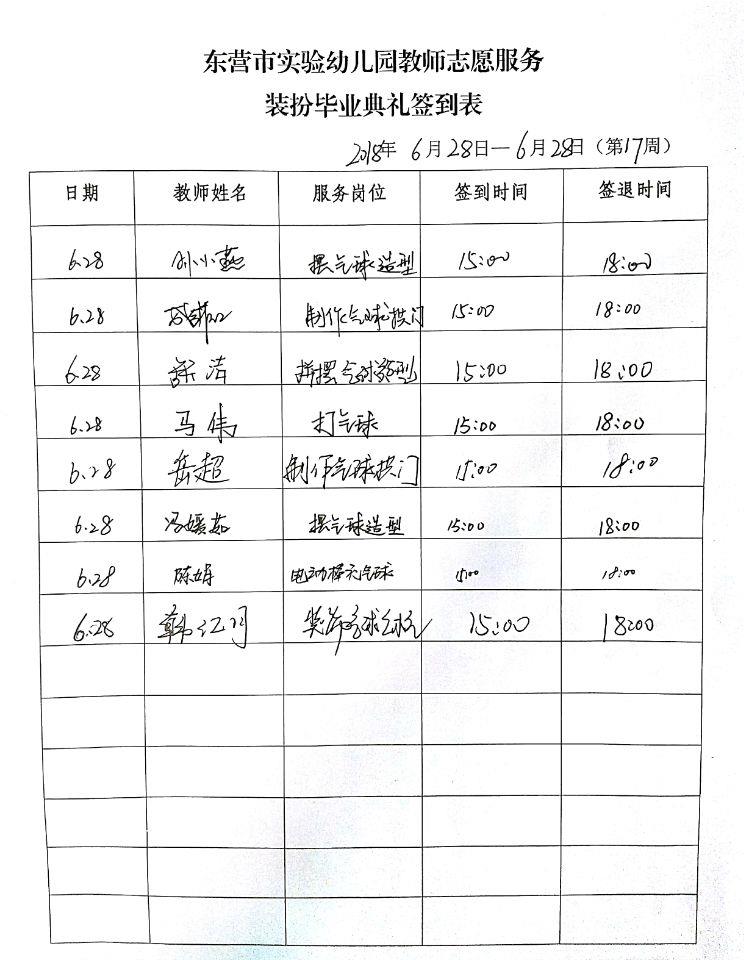 东营市实验幼儿园教师志愿服务
装扮毕业典礼签到表
2018年 6月28日—6月28日（第17周）
日期 教师姓名 服务岗位 签到时间 签退时间
6.28 孙小燕 摆气球造型 15:00 18:00
6.28 制作气球拱门 15:00 18:00
6.28 洁 拼摆气球造型 15:00 18:00
6.28 马伟 打气球 15:00 18:00
6.28 岳超 制作气球拱门 15:00 18:00
6.28 冯媛茹 摆气球造型 15:00 18:00
6.28 陈娟 电动棒充气球 15:00 18:00
6.28 韩江 装饰气球 15:00 18:00